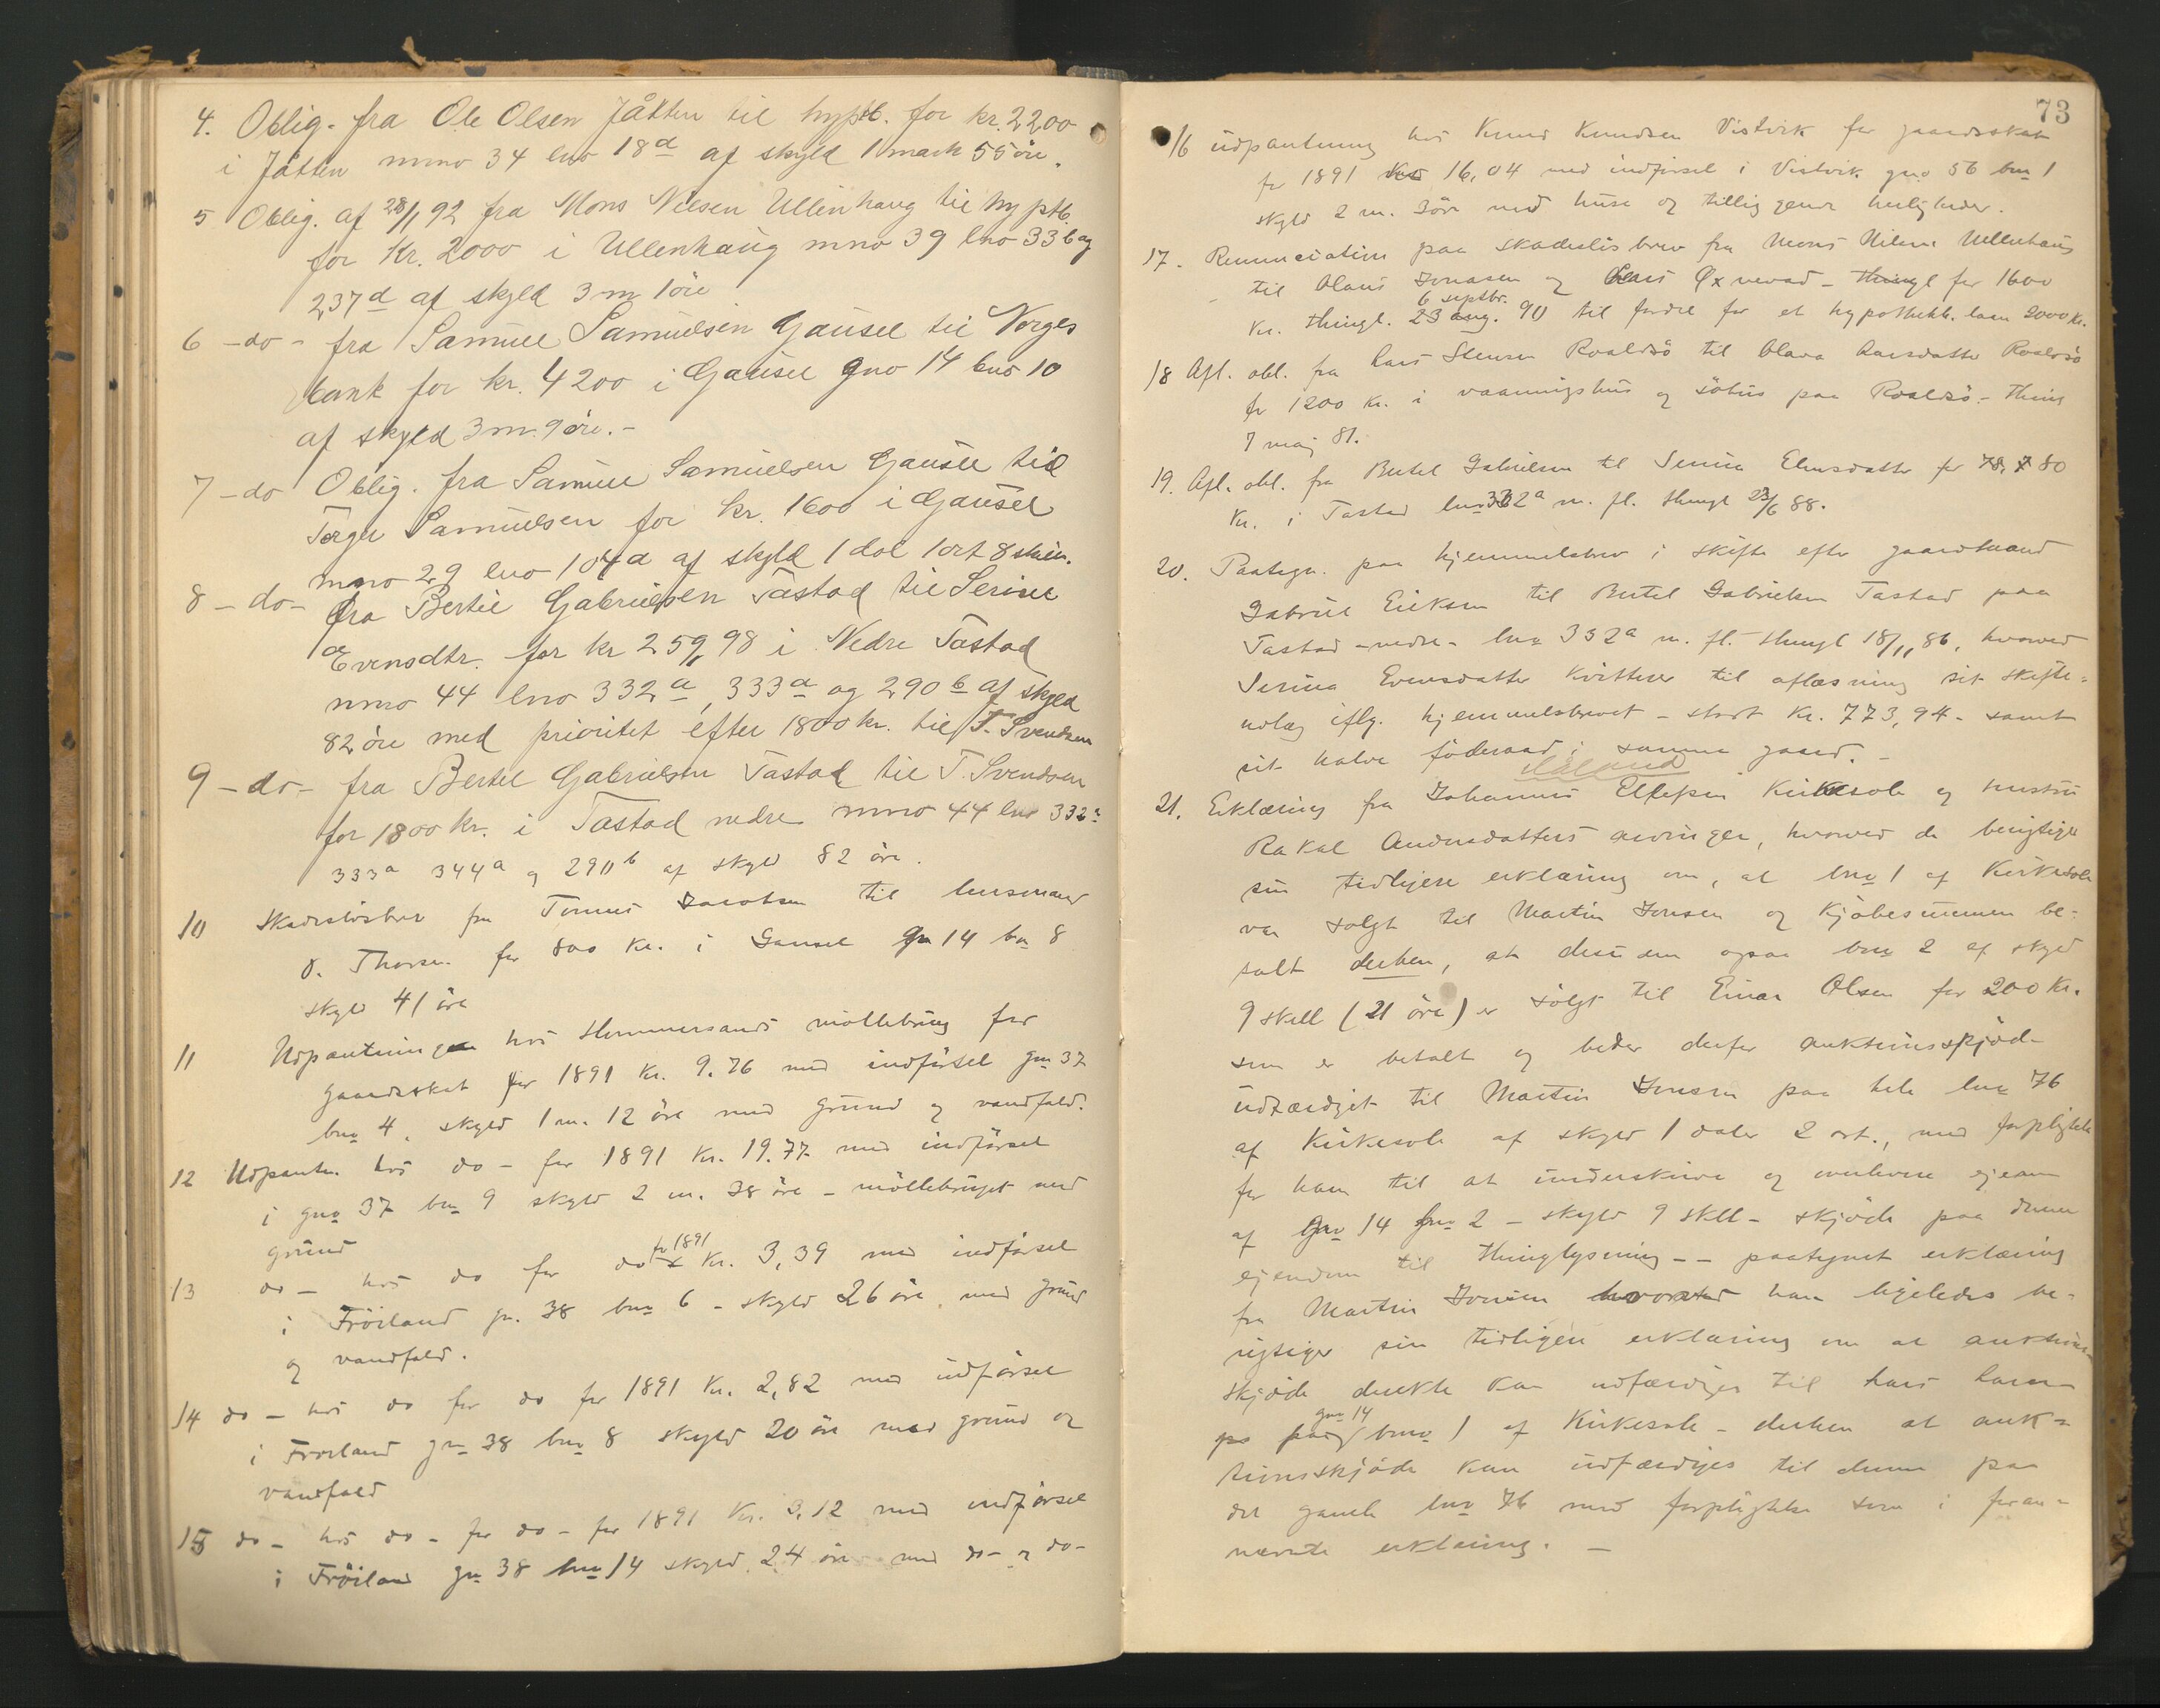 4. Oblig. fra Ole Olsen Jåtten til hyptb. for kr. 2200
i Jåtten mno 34 lno 18d af skyld 1 mark 55 öre.
5 Oblig. af 28/1 92 fra Mons Nilsen Ullenhaug til hyptb.
for Kr. 2000 i Ullenhaug mno 39 lno 33b og
237d af skyld 3 m 1 öre
6 -do- fra Samuel Samuelsen Gausel til Norges
bank for kr. 4200 i Gausel gno 14 bno 10
af skyld 3 m. 9 öre.-
7 -do Oblig. fra Samuel Samuelsen Gausel til
Torger Samuelsen for kr. 1600 i Gausel
mno 29 lno 104a af skyld 1 dal 1 ort 8 skill.
8 -do- fra Bertil Gabrielsen Tastad til Serine
Evensdtr. for kr 259,98 i Nedre Tastad
mno 44 lno 332a, 333a og 290b af skyld
82 öre med prioritet efter 1800 kr. til T. Svendsen
9 -do- fra Bertel Gabrielsen Tastad til T. Svendsen
for 1800 kr. i Tastad nedre mno 44 lno 332a
333a 344a og 290b af skyld 82 öre.
10 Skadeslösbrev fra Tönnes Jacobsen til lensmand
O. Thorsen for 800 kr. i Gausel gn 14 bn 8
skyld 41 öre
11 Udpantning hos Hommersands möllebrug for
gaardsskat for 1891 Kr. 9.76 med indförsel gno 37
bno 4, skyld 1 m. 12 öre med grund og vandfald.
12 Udpantn. hos do - for 1891 Kr. 19.77 med indförsel
i gno 37 bno 9 skyld 2 m. 38 öre - möllebruget med
grund
13 do - hos do for do for 1891 Kr. 3,39 med indförsel
i Fröiland gn. 38 bno 6 - skyld 26 öre med grund
og vandfald.
14 do - hos do for do for 1891 Kr. 2,82 med indförsel
i Fröiland gno 38 bno 8 skyld 20 öre med grund og
vandfald
15 do - hos do - for do - for 1891 Kr. 3.12 med indförsel
i Fröiland gno 38 bno 14 skyld 24 öre med do- og do-
73
16 udpantning hos Knud Knudsen Vistvik for gaardsskat
for 1891 16,04 med indförsel i Vistvik gno 56 bno 1
skyld 2 m. 3 öre med huse og tilliggende herligheder.
17. Renunciation paa skadeslösbrev fra Mons Nilsen Ullenhaug
til Olaus Jonasen og Lars Öxnevad - thingl for 1600
Kr. thingl. 23 aug. 6 septbr. 90 til fordel for et hypothekb. laan 2000 Kr.
18 Afl. obl. fra Lars Stensen Roaldsö til Olava Larsdatter Roaldsö
for 1200 Kr. i vaaningshus og söhus paa Roaldsö. - thingl
7 maj 81.
19. Afl. obl. fra Bertel Gabrielsen til Serina Evensdatter for 80
Kr. i Tastad lno 332a m. fl. thingl 23/6 88.
20. Paategn. paa hjemmelsbrev i skifte efter gaardmand
Gabriel Eriksen til Bertel Gabrielsen Tastad paa
Tastad - nedre - lno 332a m. fl. thingl 18/11 86, hvorved
Serina Evensdatter kvitterer til aflæsning sit skifte=
udlæg iflg. hjemmelsbrevet - stort Kr. 773,94 - samt
sit halve föderaad i samme gaard. -
21. Erklæring fra Johannes Ellefsen Kirkesole og hustru
Rakel Andersdatters arvinger, hvorved de berigtiger
sin tidligere erklæring om, at bno 1 af Kirkesole
var solgt til Martin Jonsen og kjöbesummen be=
talt derhen, at desuden ogsaa bno 2 af skyld
9 skill (21 öre) er solgt til Einar Olsen for 200 Kr.
som er betalt og beder derfor auktionsskjöde
udfærdiget til Martin Jonsen paa hele lno 76
af Kirkesole af skyld 1 daler 2 ort., med forpligtelse
for ham til at underskrive og overlevere ejeren
af gno 14 bno 2 - skyld 9 skill - skjöde paa denne
ejendom til thinglysning -- paategnet erklæring
fra Martin Jonsen hvorved han ligeledes be=
rigtiger sin tidligere erklæring om at auktions
skjöde direkte kan udfærdiges til Lars Larsen
paa gno 14 bno 1 af Kirkesole - derhen at auk=
tionsskjöde kan udfærdiges til denne paa
det gamle lno 76 med forpligtelse som i foran=
nævnte erklæring. -